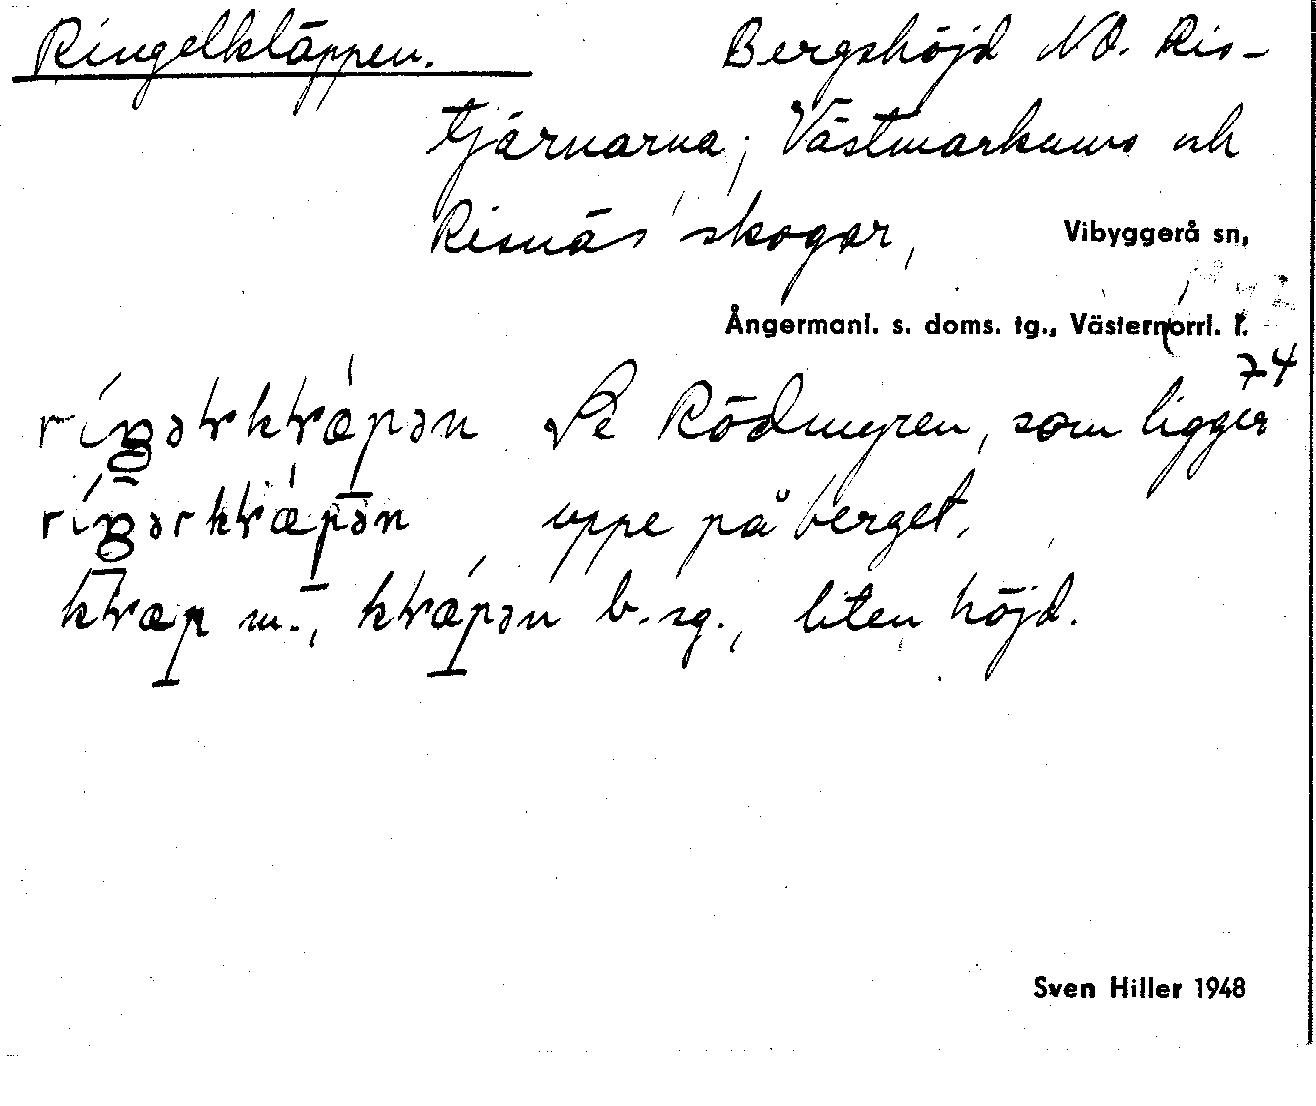 Ringelkläppen. Bergshöjd NO. Ris-
tjärnarna; Västmarkums och
Risnäs' skogar, Vibyggerå sn,
Ångermanl. s. doms. tg., Västernorrl. l.
74
Se Rödmyren, som ligger
uppe på berget.
m., b. sg., liten höjd.
Sven Hiller 1948